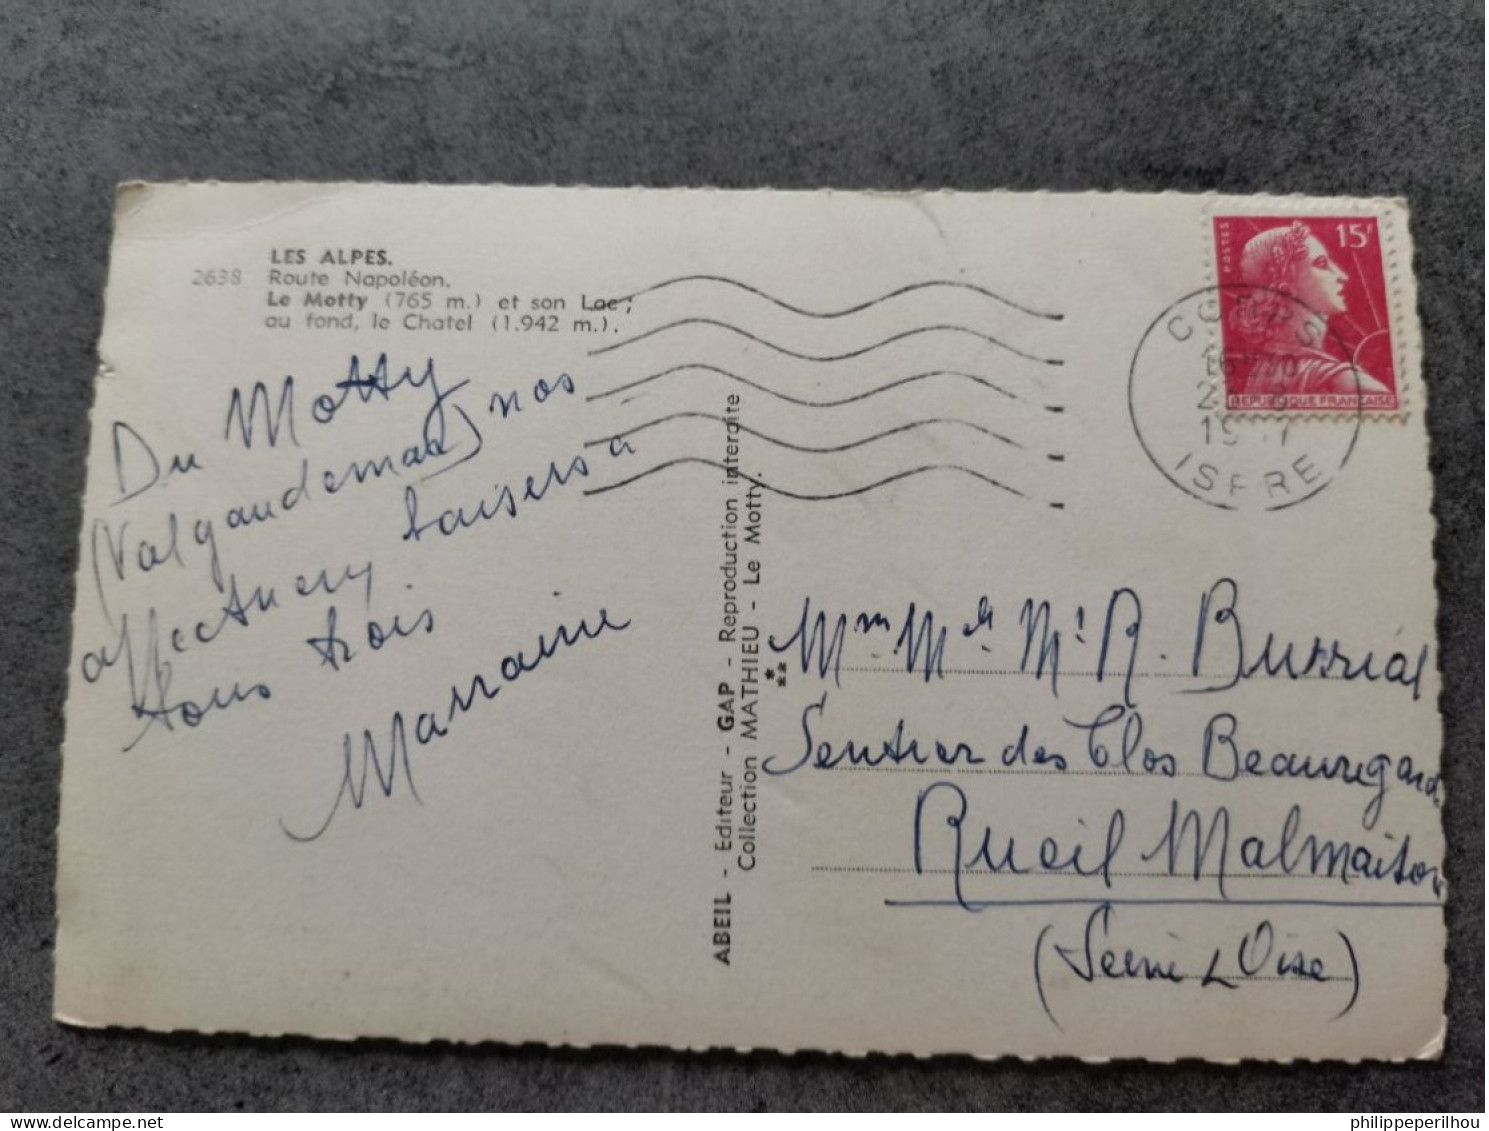 LES ALPES.
2638 Route Napoléon.
Le Motty (765 m.) et son Lac ;
au fond, le Chatel (1.942 m.).
Du Motty
(Valgaudemar) nos
affectueux baisers à
tous trois
Marraine
ABEIL - Editeur - GAP - Reproduction interdite
Collection MATHIEU - Le Motty.
POSTES
15F
REPUBLIQUE FRANÇAISE
ISERE
Mme Mlle Mr R. Bussial
Sentier des Clos Beauregard
Rueil Malmaison
(Seine & Oise)
philippeperilhou